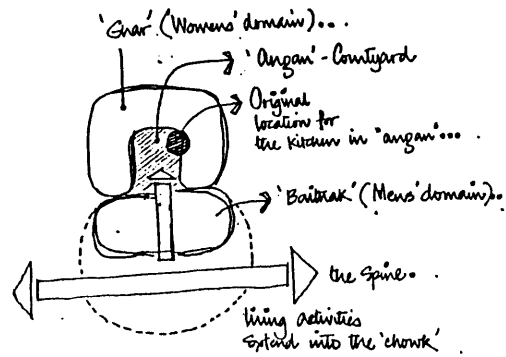 'Ghar' (Womens' domain)...
'Angan' - Courtyard
Original
location for
the kitchen in 'angan'....
'Baitrak' (Mens' domain)..
the Spine..
living activities
extend into the 'chowk'.